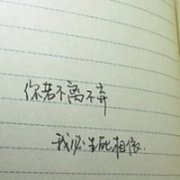 你若不离不弃
我必生死相依.